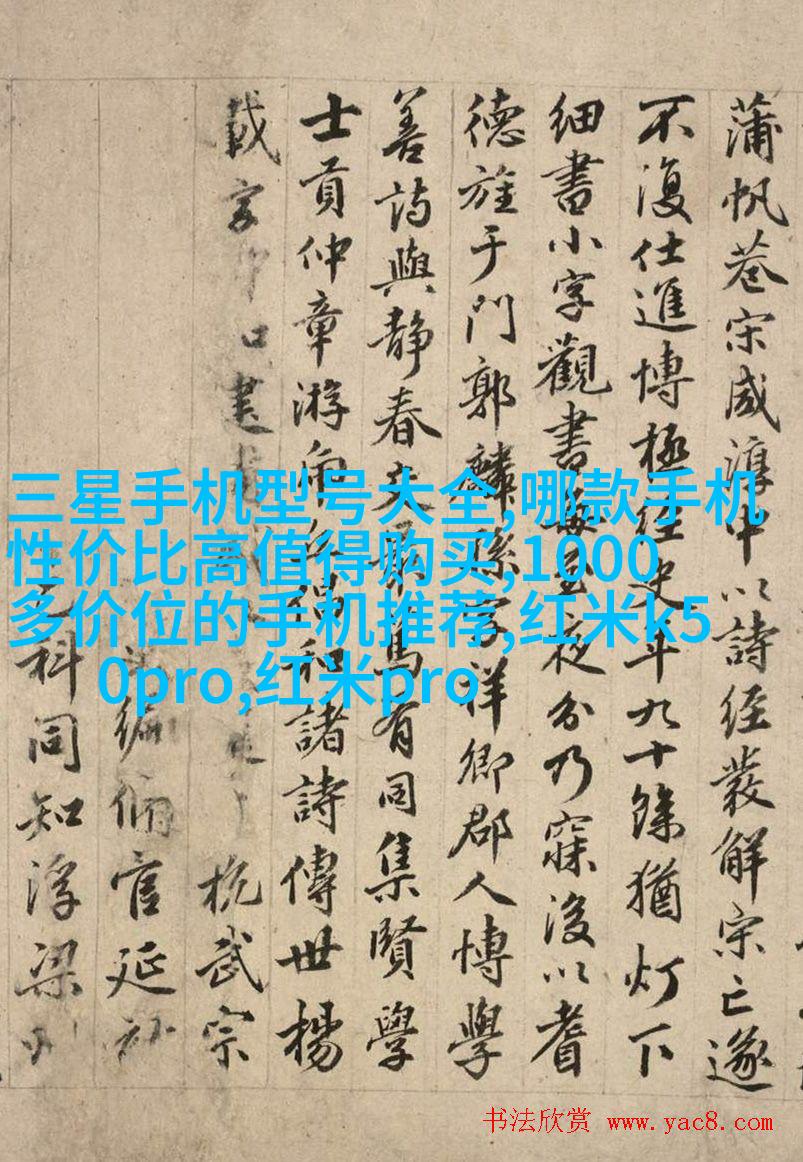 三星手机型号大全,哪款手机
性价比高值得购买,1000
多价位的手机推荐,红米k5
0pro,红米pro
蒲帆巷宋咸淳中以詩經發解宋亡遂
不復仕進博極經史年九十餘猶灯下
细書小字觀書每至夜分乃寐後以耆
德旌于門郭麟孫字祥卿郡人博學
善詩與靜春夫最為有同集賢學
士貢仲章游南和諸詩傳世楊
載字杭武宗
編脩官延祐
科同知浮梁州
书法欣赏 www.yac8.com